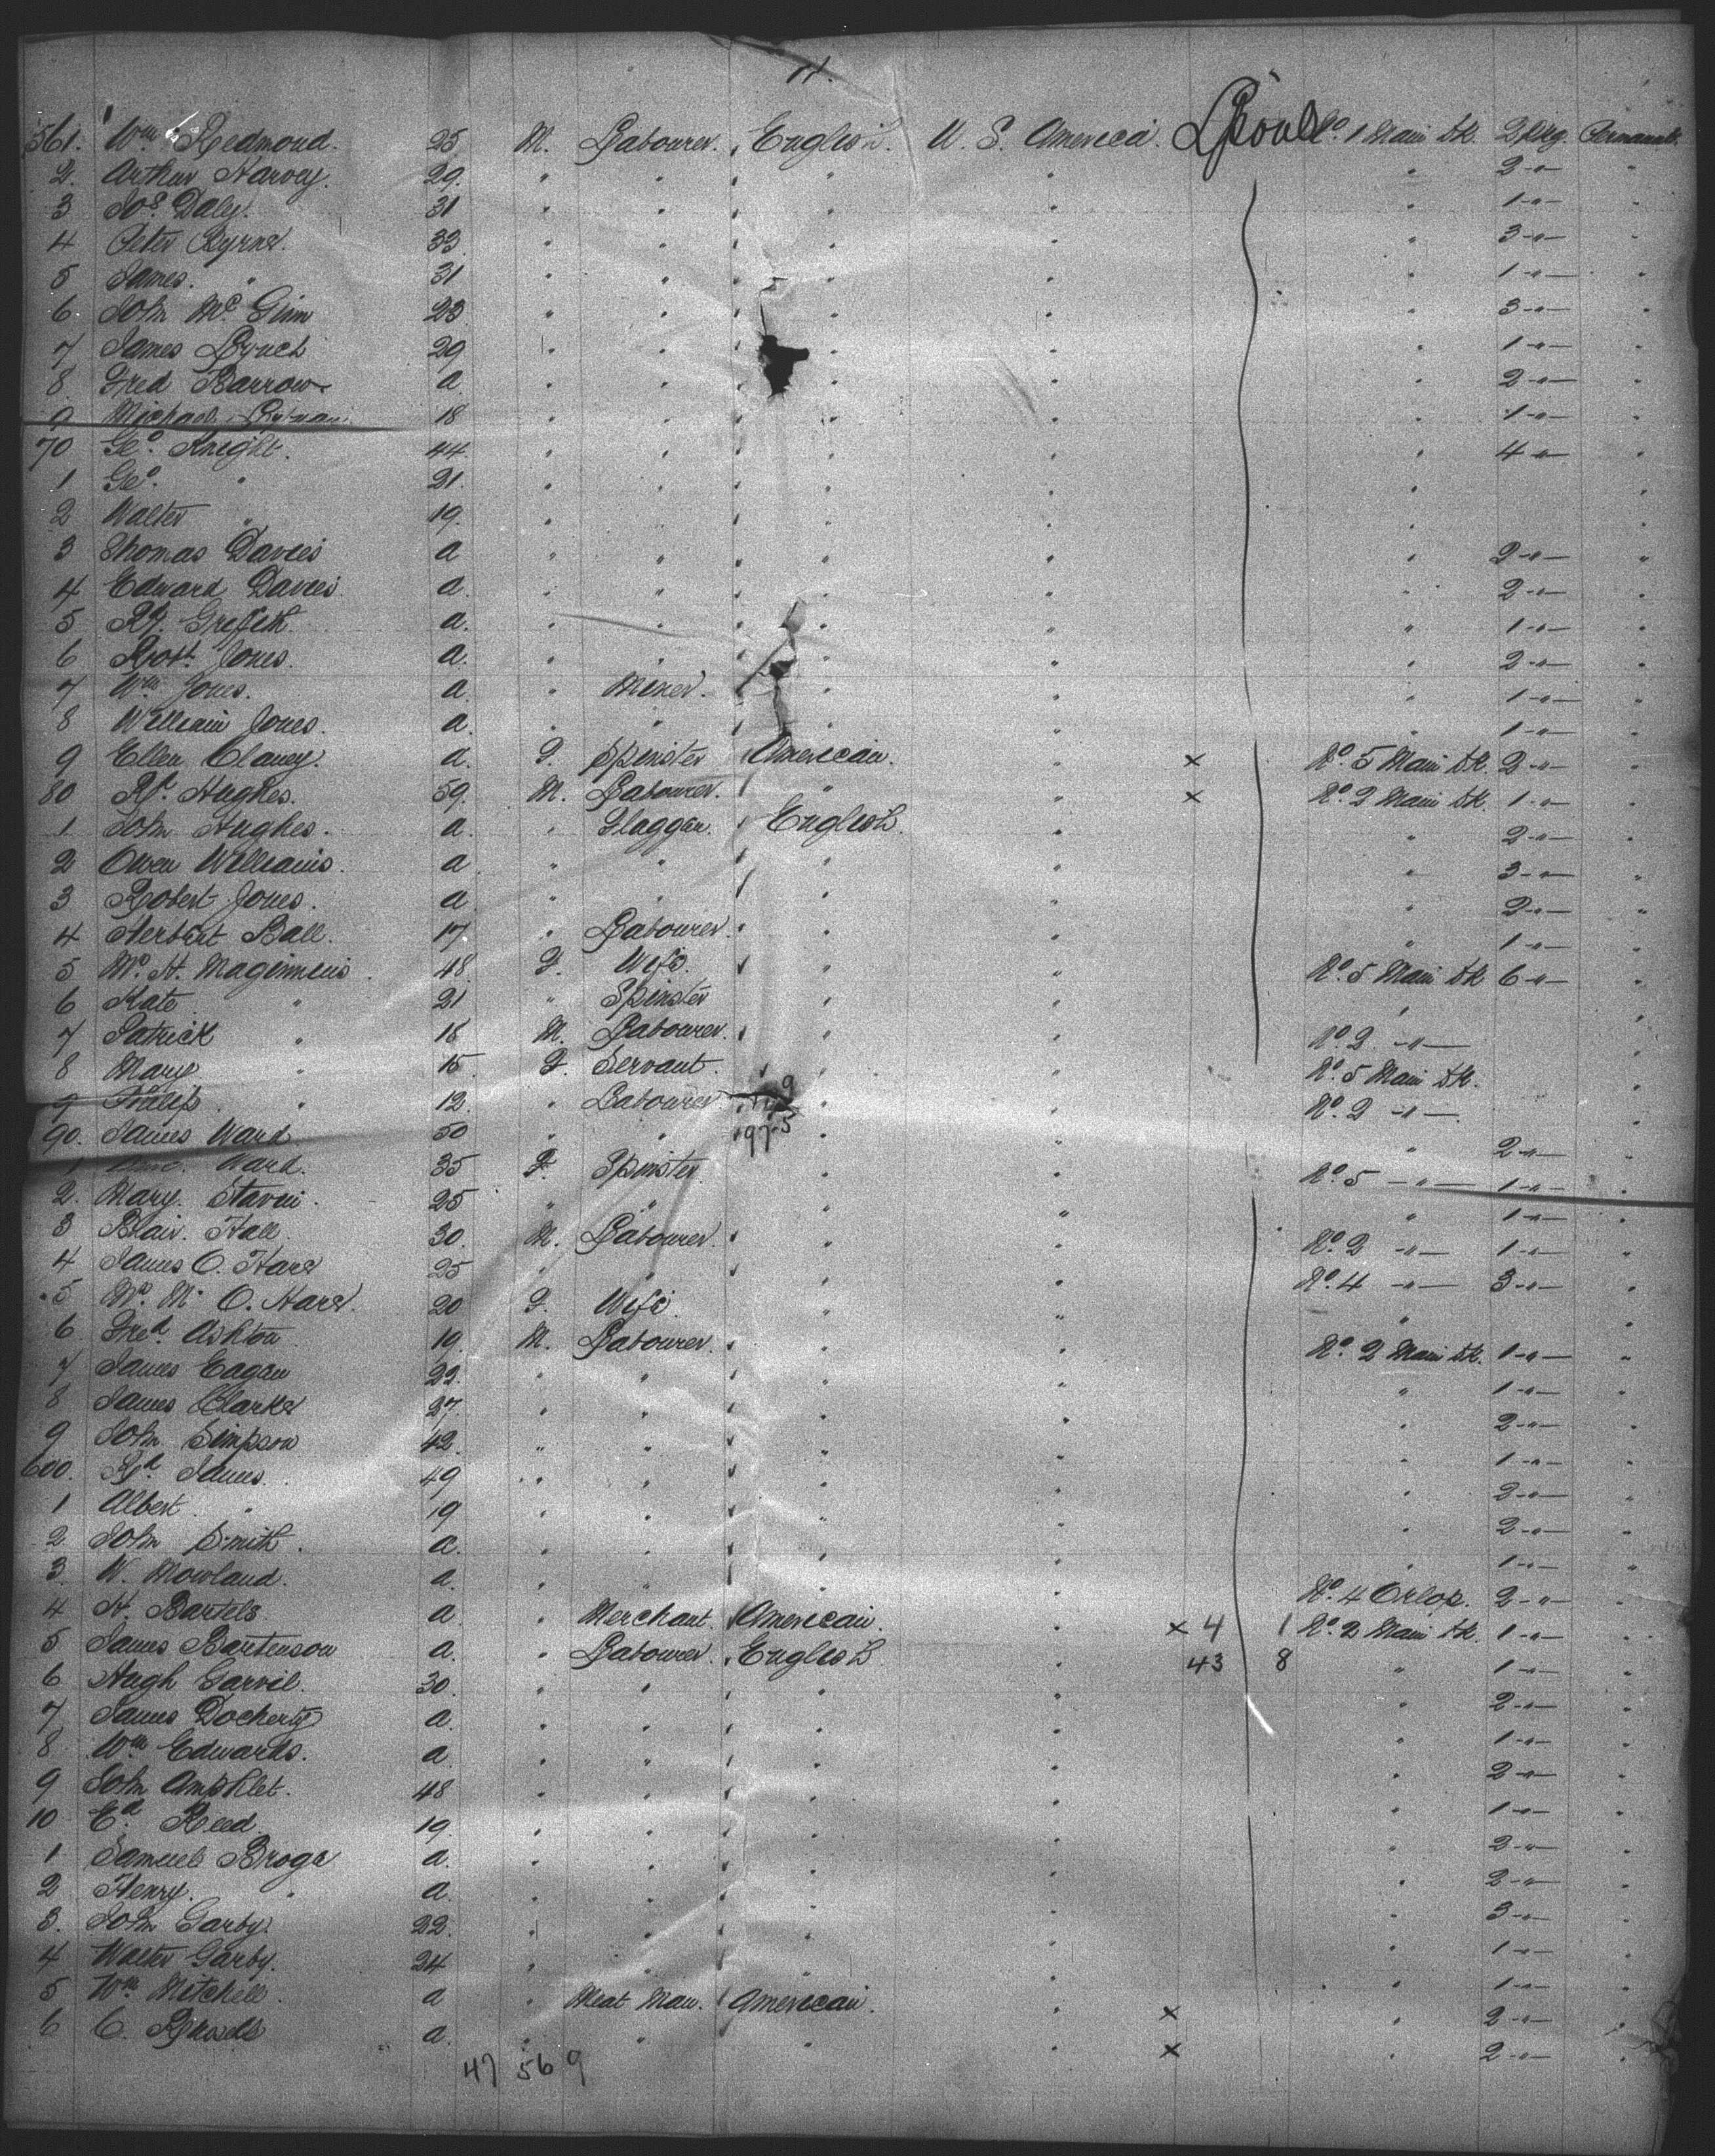 11.
561. Wm Redmond. 25 M. Labourer. English. U. S. America. L'pool No. 1 Main Dk. 2 Pkg. Permanent.
2. Arthur Harvey. 29. " " " " " 2 -"- "
3 Jos. Daly. 31 " " " " " 1 -"- "
4 Peter Byrne. 33 " " " " " 3 -"- "
5 James. " 31 " " " " " 1 -"- "
6 John Mc Ginn 23 " " " " " 3 -"- "
7 James Lynch 29 " " " " " 1 -"- "
8 Fred Barrow a " " " " " 2 -"- "
9 Michael 18 " " " " " 1 -"- "
70 Geo. Knight. 44 " " " " " 4 -"- "
1 Geo. " 21. " " " " " "
2 Walter " 19. " " " " " "
3 Thomas Davies a " " " " " 2 -"- "
4 Edward Davies. a. " " " " " 2 -"- "
5 Rd. Griffith. a. " " " " " 1 -"- "
6 Robt. Jones. a. " " " " " 2 -"- "
7 Wm Jones. a " Miner. " " " 1 -"- "
8 William Jones. a. " " " " " 1 -"- "
9 Ellen Clancy. a. F. Spinster American. " x No. 5 Main Dk. 2 -"- "
80 Rd. Hughes. 59. M. Labourer. " " x No. 2 Main Dk. 1 -"- "
1 John Hughes. a. " Flaggar. English. " " 2 -"- "
2 Owen Williams. a. " " " " " 3 -"- "
3 Robert Jones. a. " " " " " 2 -"- "
4 Herbert Ball. 17. " Labourer. " " " 1 -"- "
5 Mrs. H. Maginnis. 48. F. Wife. " " No. 5 Main Dk 6 -"- "
6 Kate " 21 " Spinster " " " "
7 Patrick " 18 M. Labourer. " " No. 2. -"- "
8 Mary. " 15. F. Servant. " " No. 5 Main Dk. "
9 Philip. " 12. " Labourer " " No. 2 -"- "
90. James Ward 50 " " " " " 2 -"- "
1 Ward. 35 F. Spinster. " " No. 5 -"- 1 -"- "
2. Mary. 25 " " " " " 1 -"- "
3 Blair. Hall. 30. M. Labourer. " " No. 2 -"- 1 -"- "
4 James O. Hare 25 " " " " No. 4 -"- 3 -"- "
5 Mrs. M. O. Hare. 20 F. Wife. " " " "
6 Fred Ashton 19. M. Labourer. " " No. 2 Main Dk. 1 -"- "
7 James Eagan 22. " " " " " 1 -"- "
8 James Clarke 27. " " " " " 2 -"- "
9 John Simpson 42. " " " " " 1 -"- "
600. Rd. James. 49 " " " " " 2 -"- "
1 Albert. " 19 " " " " " 2 -"- "
2 John Smith. a. " " " " " 1 -"- "
3. W. Mowland. a. " " " " No. 4 Orlop. 2 -"- "
4 H. Bartels. a " Merchant. American. " x 4 1 No. 2 Main Dk. 1 -"- "
5 James Bartenson a. " Labourer. English " 43 8 " 1 -"- "
6 Hugh 30. " " " " " 2 -"- "
7 James Docherty a. " " " " " 1 -"- "
8 Wm Edwards. a " " " " " 2 -"- "
9 John Amphlet. 48 " " " " " 1 -"- "
10 Ed. Reed. 19. " " " " " 2 -"- "
1 Samuel Broga a. " " " " " 2 -"- "
2 Henry. " a. " " " " " 3 -"- "
3. John Garby. 22. " " " " " 1 -"- "
4 Walter Garby. 24 " " " " " 1 -"- "
5 Wm Mitchell. a " Meat Man. American. " x " 2 -"- "
6 C. a. " " " " x " 2 -"- "
47 56 9